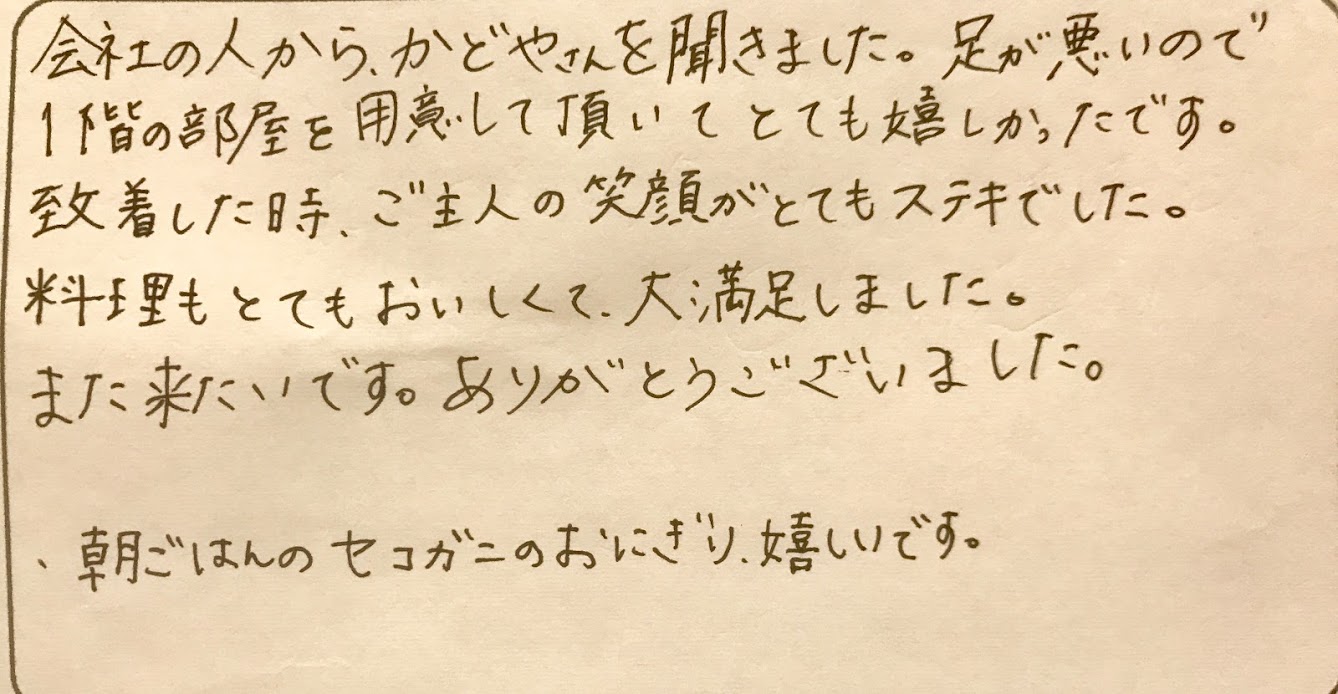 会社の人から、かどやさんを聞きました。足が悪いので
1階の部屋を用意して頂いてとても嬉しかったです。
致着した時、ご主人の笑顔がとてもステキでした。
料理もとてもおいしくて、大満足しました。
また来たいです。ありがとうございました。
、朝ごはんのセコガニのおにぎり、嬉しいです。